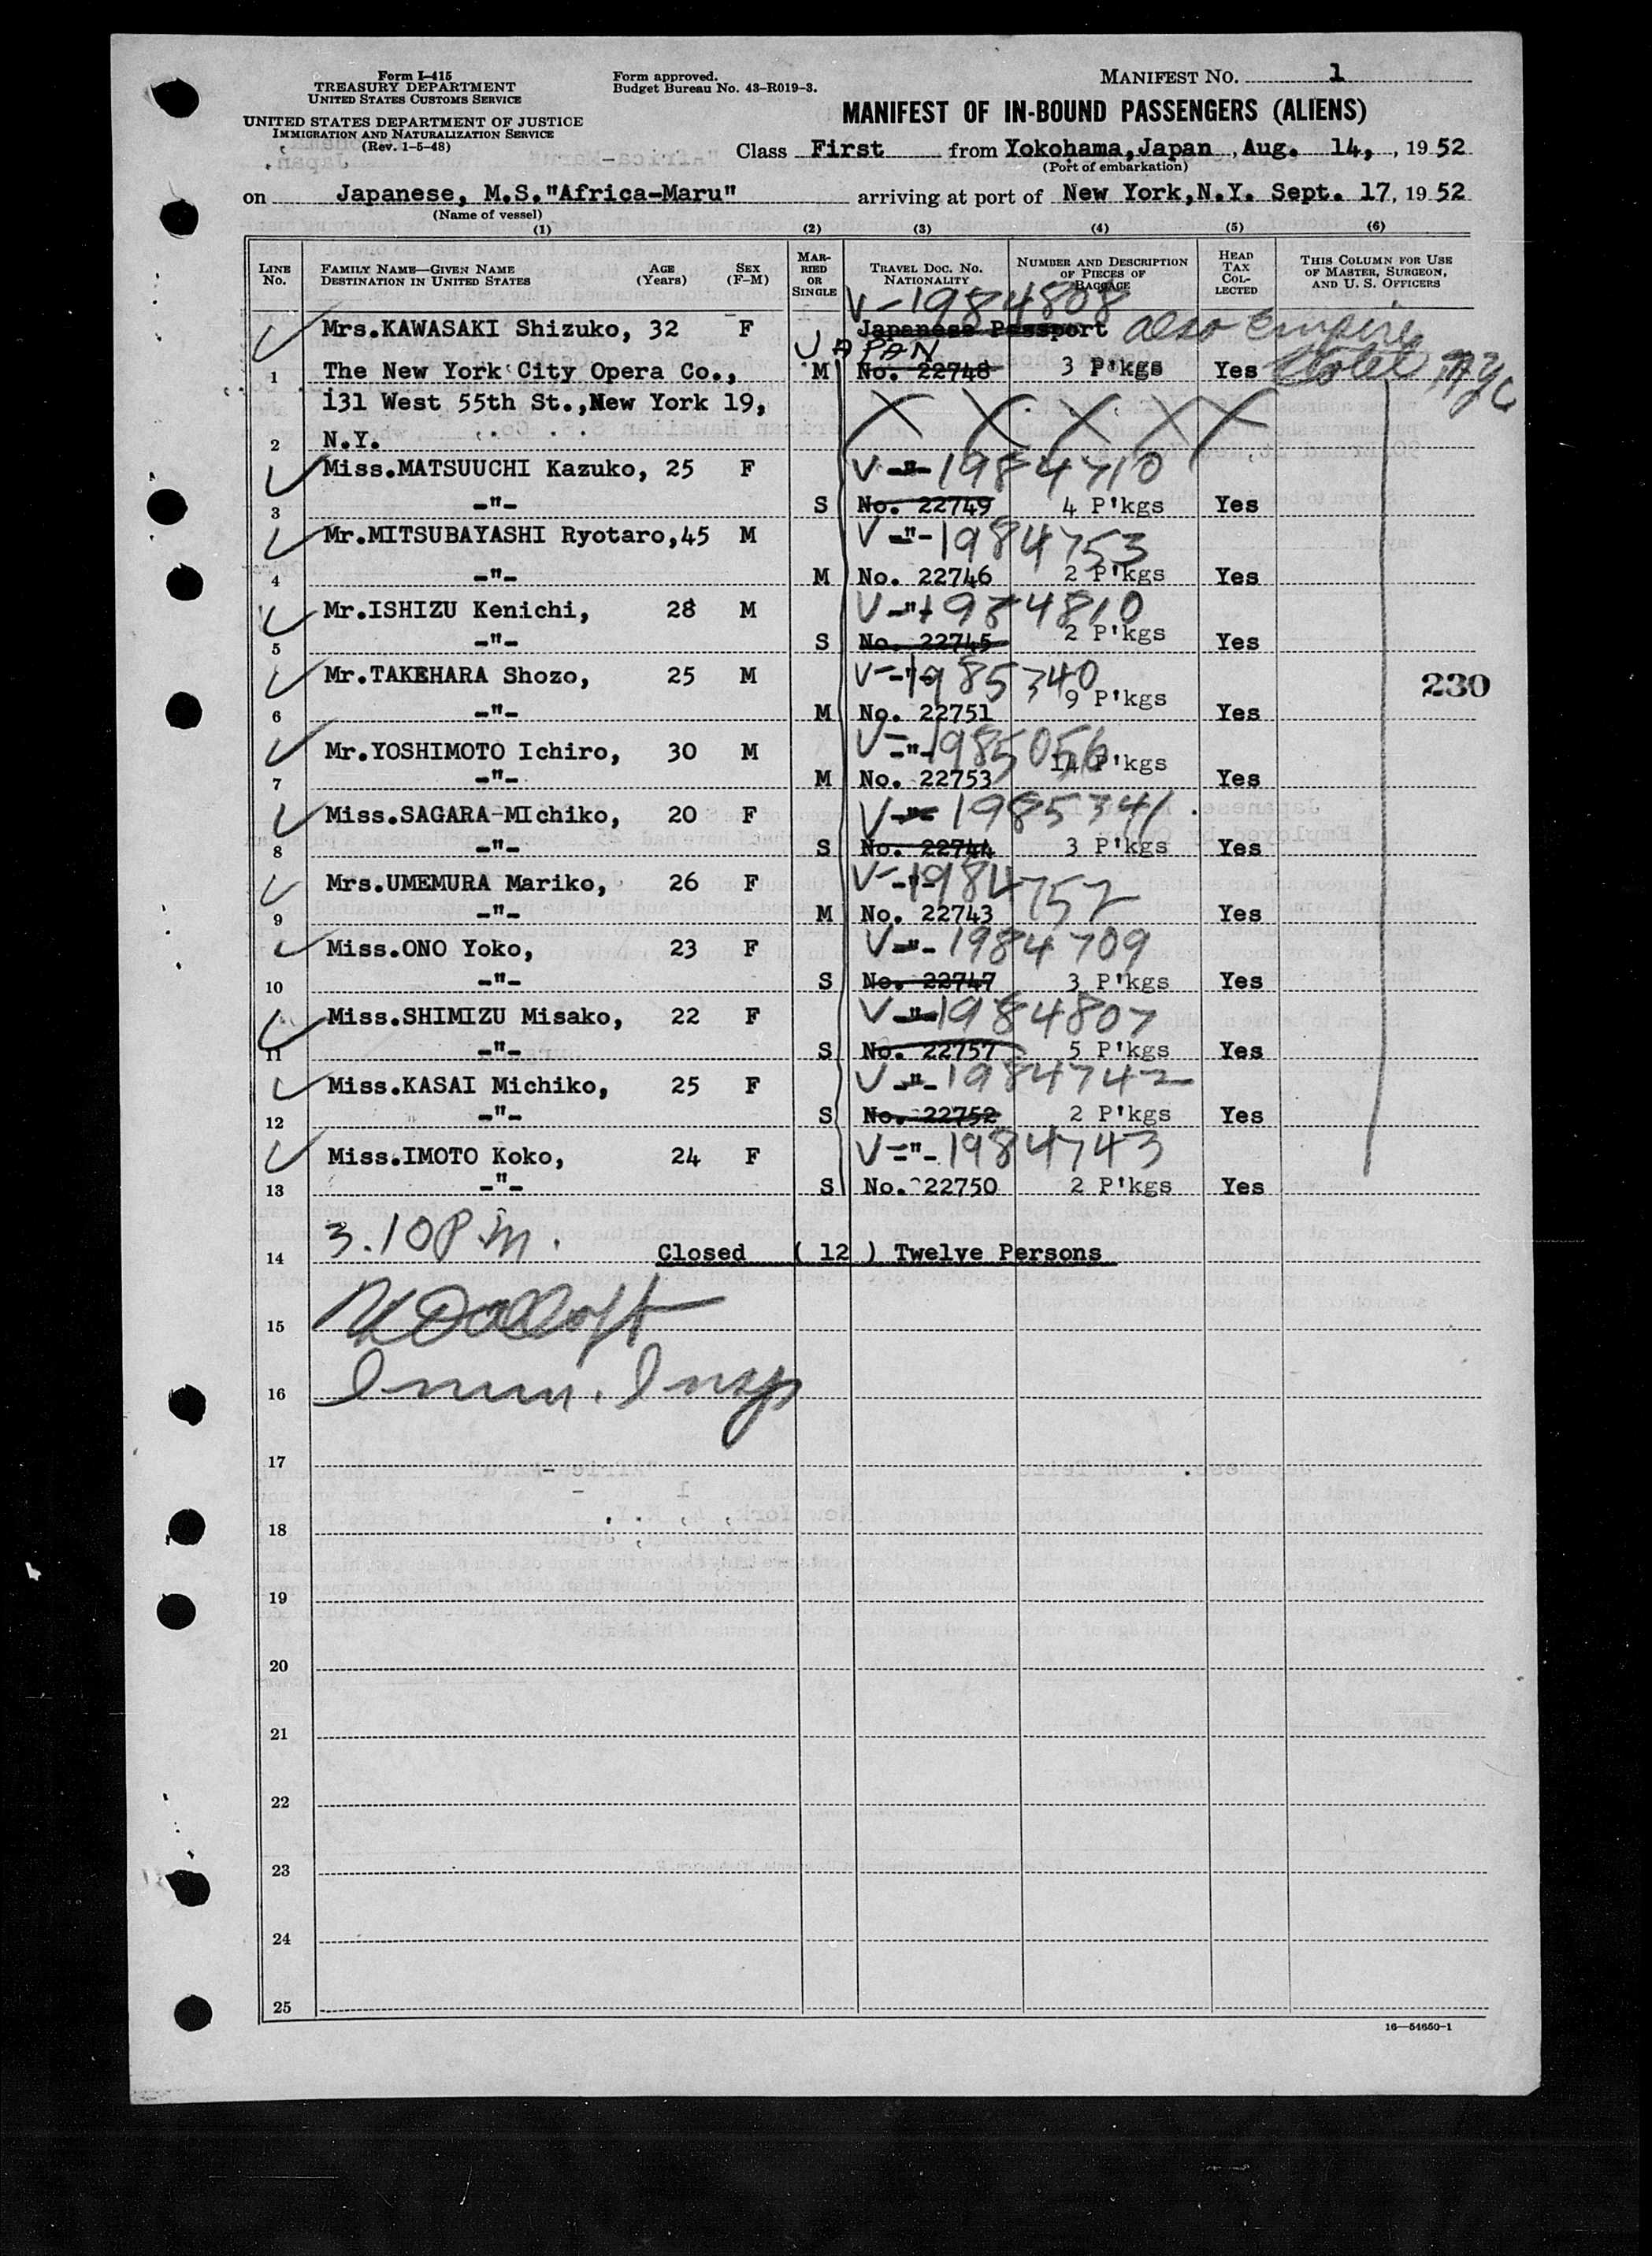 Form I-415
TREASURY DEPARTMENT
UNITED STATES CUSTOMS SERVICE
UNITED STATES DEPARTMENT OF JUSTICE
IMMIGRATION AND NATURALIZATION SERVICE
(Rev. 1-5-48)
Form approved.
Budget Bureau No. 43-R019-3.
MANIFEST NO. 1
MANIFEST OF IN-BOUND PASSENGERS (ALIENS)
Class First from Yokohama, Japan, Aug. 14, 1952
(Port of embarkation)
on Japanese, M.S."Africa-Maru" arriving at port of New York, N.Y. Sept. 17, 1952
(Name of vessel)
(1) (2) (3) (4) (5) (6)
LINE NO. FAMILY NAME—GIVEN NAME DESTINATION IN UNITED STATES AGE (Years) SEX (F-M) MARRIED OR SINGLE TRAVEL DOC. NO. NATIONALITY NUMBER AND DESCRIPTION OF PIECES OF BAGGAGE HEAD TAX COLLECTED THIS COLUMN FOR USE OF MASTER, SURGEON, AND U. S. OFFICERS
V-1984808
Mrs.KAWASAKI Shizuko, 32 F Japanese Passport also Empire
JAPAN
1 The New York City Opera Co., M No. 22748 3 P'kgs Yes Hotel NYC
131 West 55th St.,New York 19, X X X X X
2 N.Y.
Miss.MATSUUCHI Kazuko, 25 F V -"- 1984710
3 -"- S No. 22749 4 P'kgs Yes
Mr.MITSUBAYASHI Ryotaro, 45 M V -"- 1984753
4 -"- M No. 22746 2 P'kgs Yes
Mr.ISHIZU Kenichi, 28 M V -"- 1984810
5 -"- S No. 22745 2 P'kgs Yes
Mr.TAKEHARA Shozo, 25 M V -"- 1985340
6 -"- M No. 22751 9 P'kgs Yes
Mr.YOSHIMOTO Ichiro, 30 M V -"- 1985056
7 -"- M No. 22753 14 P'kgs Yes
Miss.SAGARA-MIchiko, 20 F V -"- 1985341
8 -"- S No. 22744 3 P'kgs Yes
Mrs.UMEMURA Mariko, 26 F V -"- 1984752
9 -"- M No. 22743 Yes
Miss.ONO Yoko, 23 F V -"- 1984709
10 -"- S No. 22747 3 P'kgs Yes
Miss.SHIMIZU Misako, 22 F V -"- 1984807
11 -"- S No. 22757 5 P'kgs Yes
Miss.KASAI Michiko, 25 F V -"- 1984742
12 -"- S No. 22752 2 P'kgs Yes
Miss.IMOTO Koko, 24 F V -"- 1984743
13 -"- S No. 22750 2 P'kgs Yes
230
3.10 P.M.
14 Closed ( 12 ) Twelve Persons
15
16 Imm. Insp
17
18
19
20
21
22
23
24
25
16—54650-1